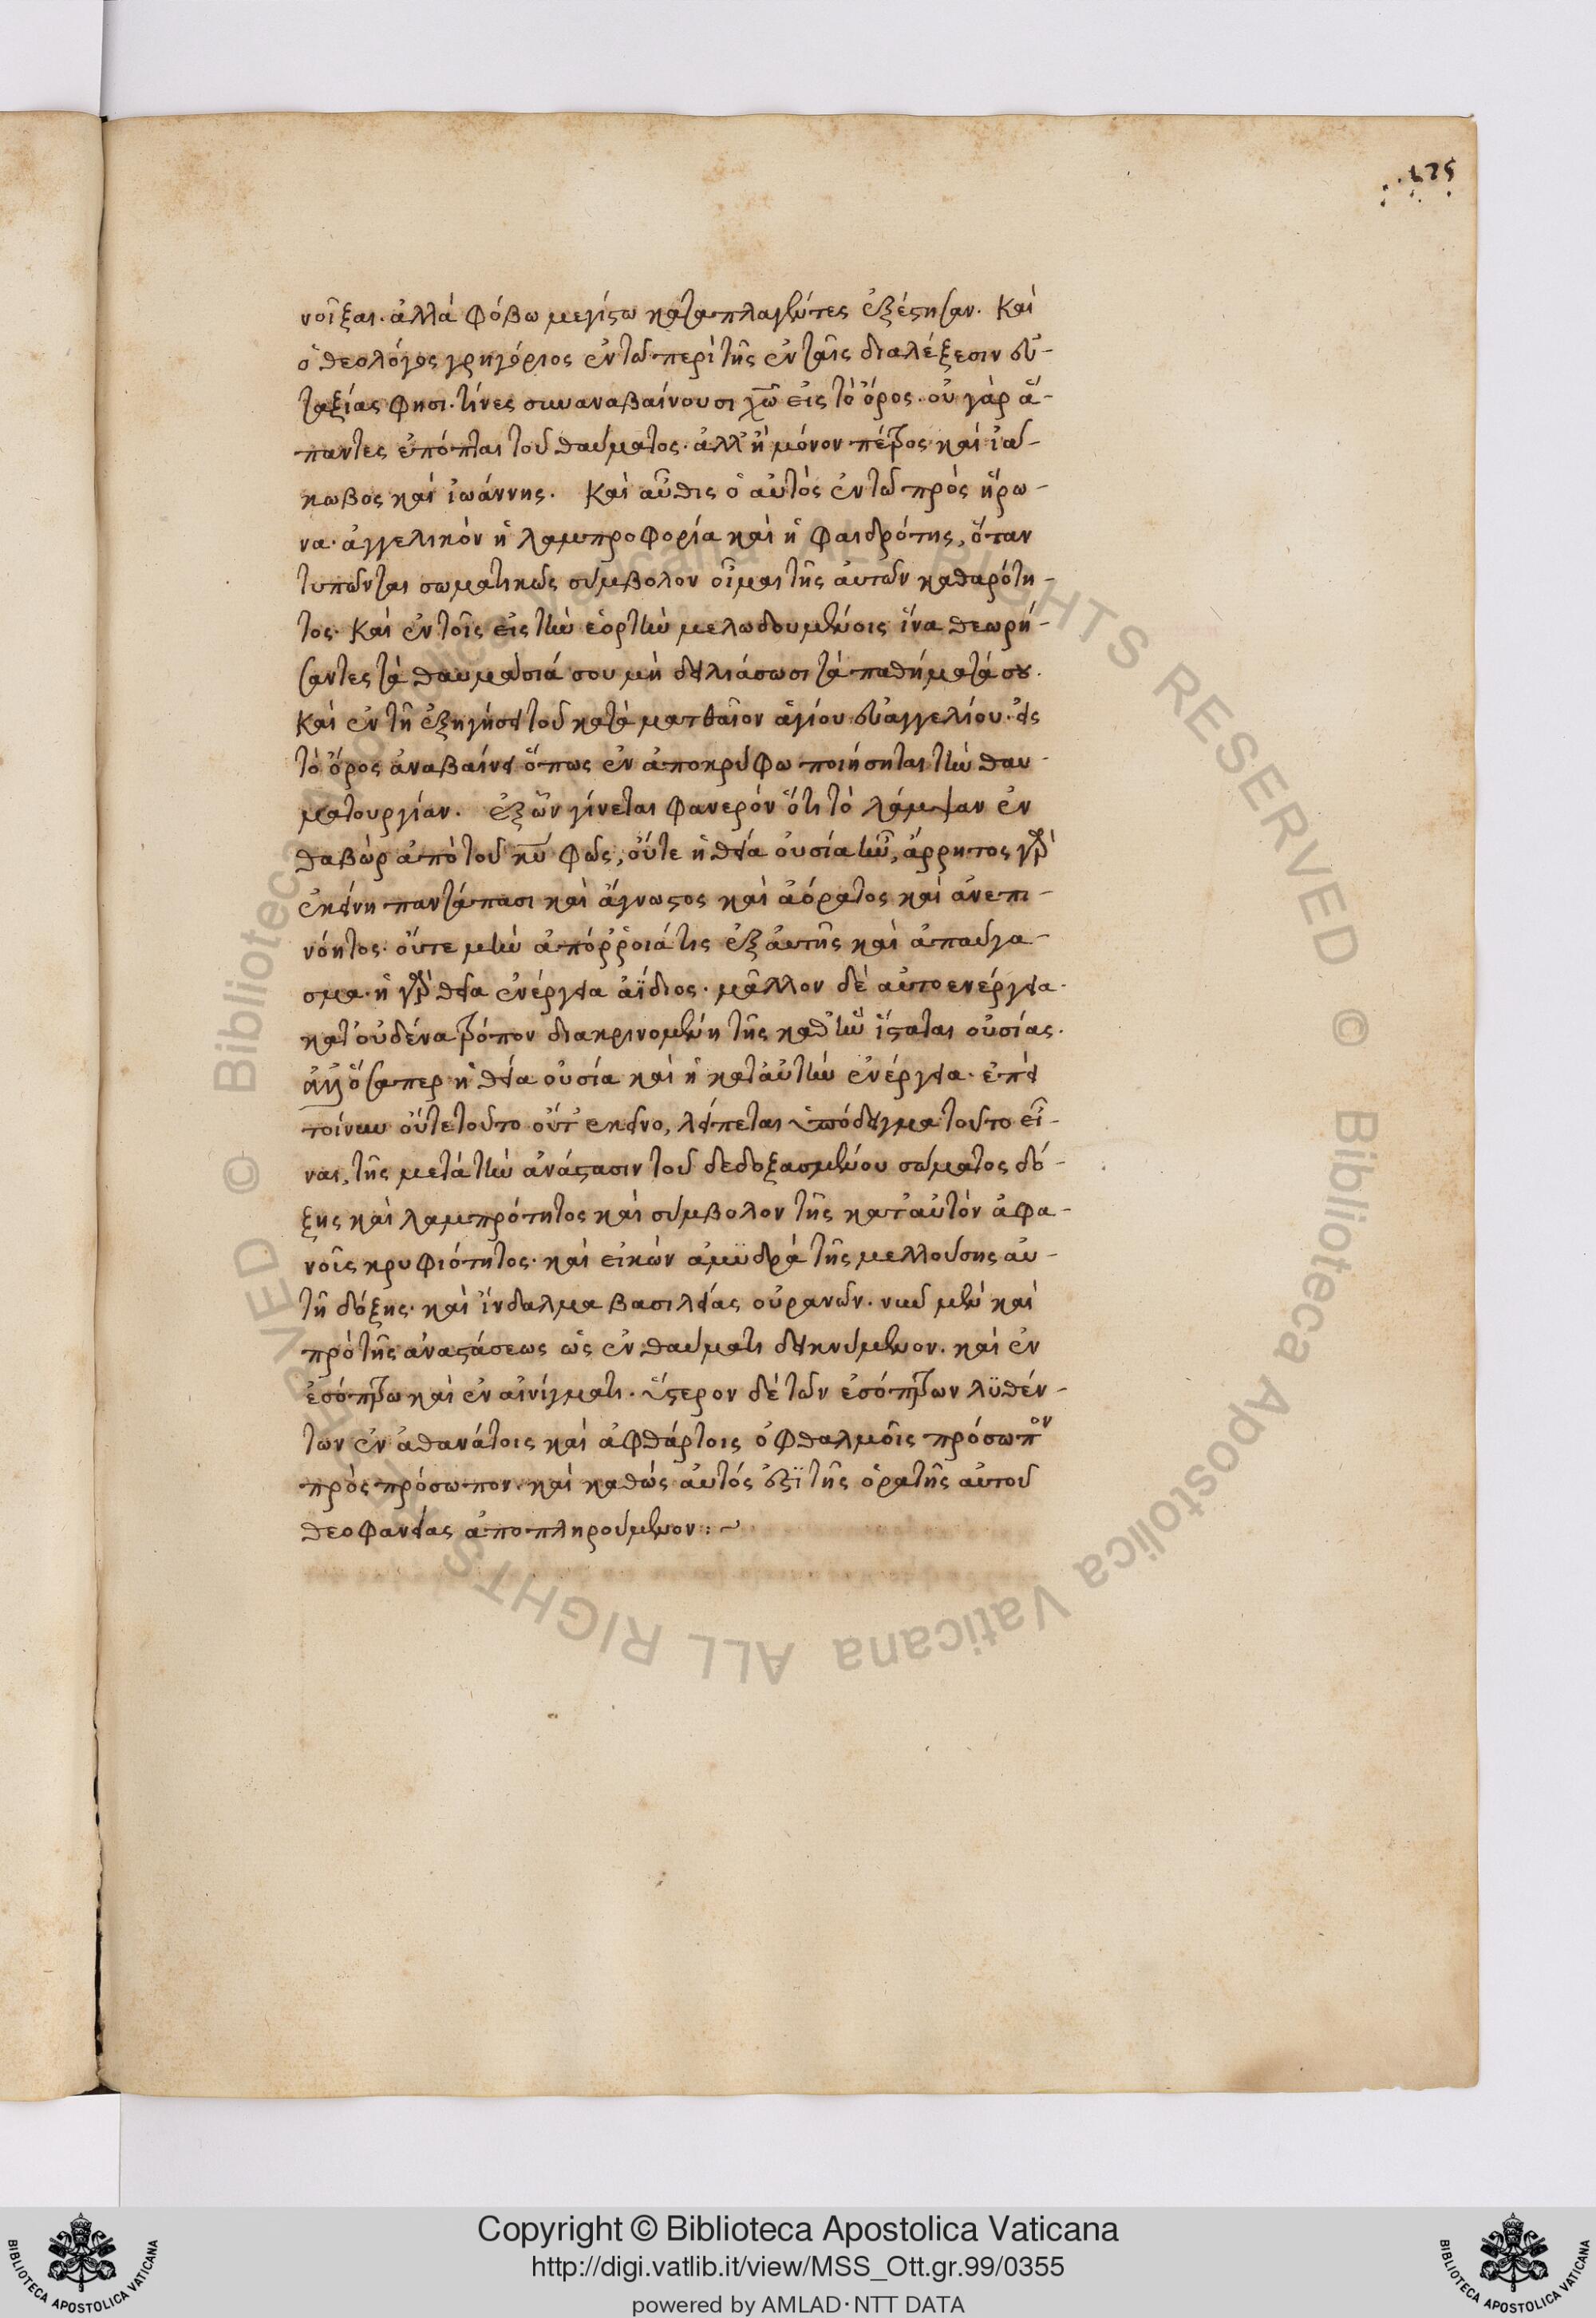 175
νοῖξαι. ἀλλὰ φόβω μεγίστω καταπλαγέντες ἐξέστησαν. Καὶ
ὁ θεολόγος γρηγόριος ἐν τῶ περὶ τῆς ἐν ταῖς διαλέξεσιν εὐ-
ταξίας φησι. τίνες συναναβαίνουσι χῶ εἰς τὸ ὄρος. οὐ γὰρ ἅ-
παντες ἐπόπται τοῦ θαύματος. ἀλλ' ἢ μόνον πέτρος καὶ ἰά-
κωβος καὶ ἰωάννης. Καὶ αὖθις ὁ αὐτὸς ἐν τῶ πρὸς ἥρω-
να. ἀγγελικὸν ἡ λαμπροφορία καὶ ἡ φαιδρότης, ὅταν
τυπῶνται σωματικῶς σύμβολον οἶμαι τῆς αὐτῶν καθαρότη-
τος. Καὶ ἐν τοῖς εἰς τὴν ἑορτὴν μελωδουμένοις ἵνα θεωρή-
σαντες τὰ θαυμάσιά σου μὴ δειλιάσωσι τὰ παθήματά σου.
Καὶ ἐν τῆ ἐξηγήσει τοῦ κατὰ ματθαῖον ἁγίου εὐαγγελίου. εἰς
τὸ ὄρος ἀναβαίνει ὅπως ἐν ἀποκρύφω ποιήσηται τὴν θαυ-
ματουργίαν. ἐξ ὧν γίνεται φανερὸν ὅτι τὸ λάμψαν ἐν
θαβὼρ ἀπὸ τοῦ κυ φῶς, οὔτε ἡ θεία οὐσία ἦν, ἄρρητος γὰρ
ἐκείνη παντάπασι καὶ ἄγνωστος καὶ ἀόρατος καὶ ἀνεπι-
νόητος. οὔτε μὴν ἀπόρροιά τις ἐξ αὐτῆς καὶ ἀπαύγα-
σμα. ἡ γὰρ θεία ἐνέργεια ἀΐδιος. μᾶλλον δὲ αὐτοενέργεια.
κατ' οὐδένα τρόπον διακρινομένη τῆς καθ' ἣν ἵσταται οὐσίας.
ἀλλ' ὅσαπερ ἡ θεία οὐσία καὶ ἡ κατ' αὐτὴν ἐνέργεια. ἐπεὶ
τοίνυν οὔτε τοῦτο οὔτ' ἐκεῖνο, λείπεται ὑπόδειγμα τοῦτο εἶ-
ναι, τῆς μετὰ τὴν ἀνάστασιν τοῦ δεδοξασμένου σώματος δό-
ξης καὶ λαμπρότητος καὶ σύμβολον τῆς κατ' αὐτὸν ἀφα-
νοῖς κρυφιότητος. καὶ εἰκὼν ἀμυδρὰ τῆς μελλούσης αὐ-
τῆ δόξης. καὶ ἴνδαλμα βασιλείας οὐρανῶν. νῦν μὲν καὶ
πρὸ τῆς ἀναστάσεως ὡς ἐν θαύματι δεικνύμενον. καὶ ἐν
ἐσόπτρω καὶ ἐν αἰνίγματι. ὕστερον δὲ τῶν ἐσόπτρων λυθέν-
των ἐν ἀθανάτοις καὶ ἀφθάρτοις ὀφθαλμοῖς πρόσωπον
πρὸς πρόσωπον. καὶ καθὼς αὐτός ἐστι τῆς ὁρατῆς αὐτοῦ
θεοφανείας ἀποπληρούμενον :~
© Biblioteca Apostolica Vaticana ALL RIGHTS RESERVED © Biblioteca Apostolica Vaticana ALL RIGHTS RESERVED
Copyright © Biblioteca Apostolica Vaticana
http://digi.vatlib.it/view/MSS_Ott.gr.99/0355
powered by AMLAD·NTT DATA
BIBLIOTECA APOSTOLICA VATICANA
BIBLIOTECA APOSTOLICA VATICANA